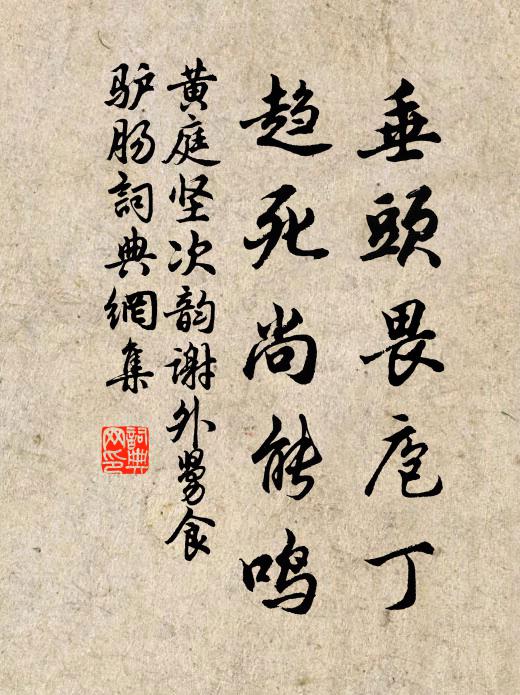 垂頭畏庖丁
趋死尚能鸣
黄庭坚次韵谢外舅食
驴肠詞典網集
詞典网印